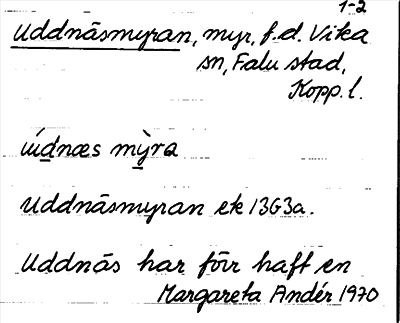 1-2
Uddnäsmyran, myr, f.d. Vika
sn, Falu stad,
Kopp. l.
ẃdnæs mỳra
Uddnäsmyran ek 13G3a.
Uddnäs har förr haft en
Margareta Andér 1970